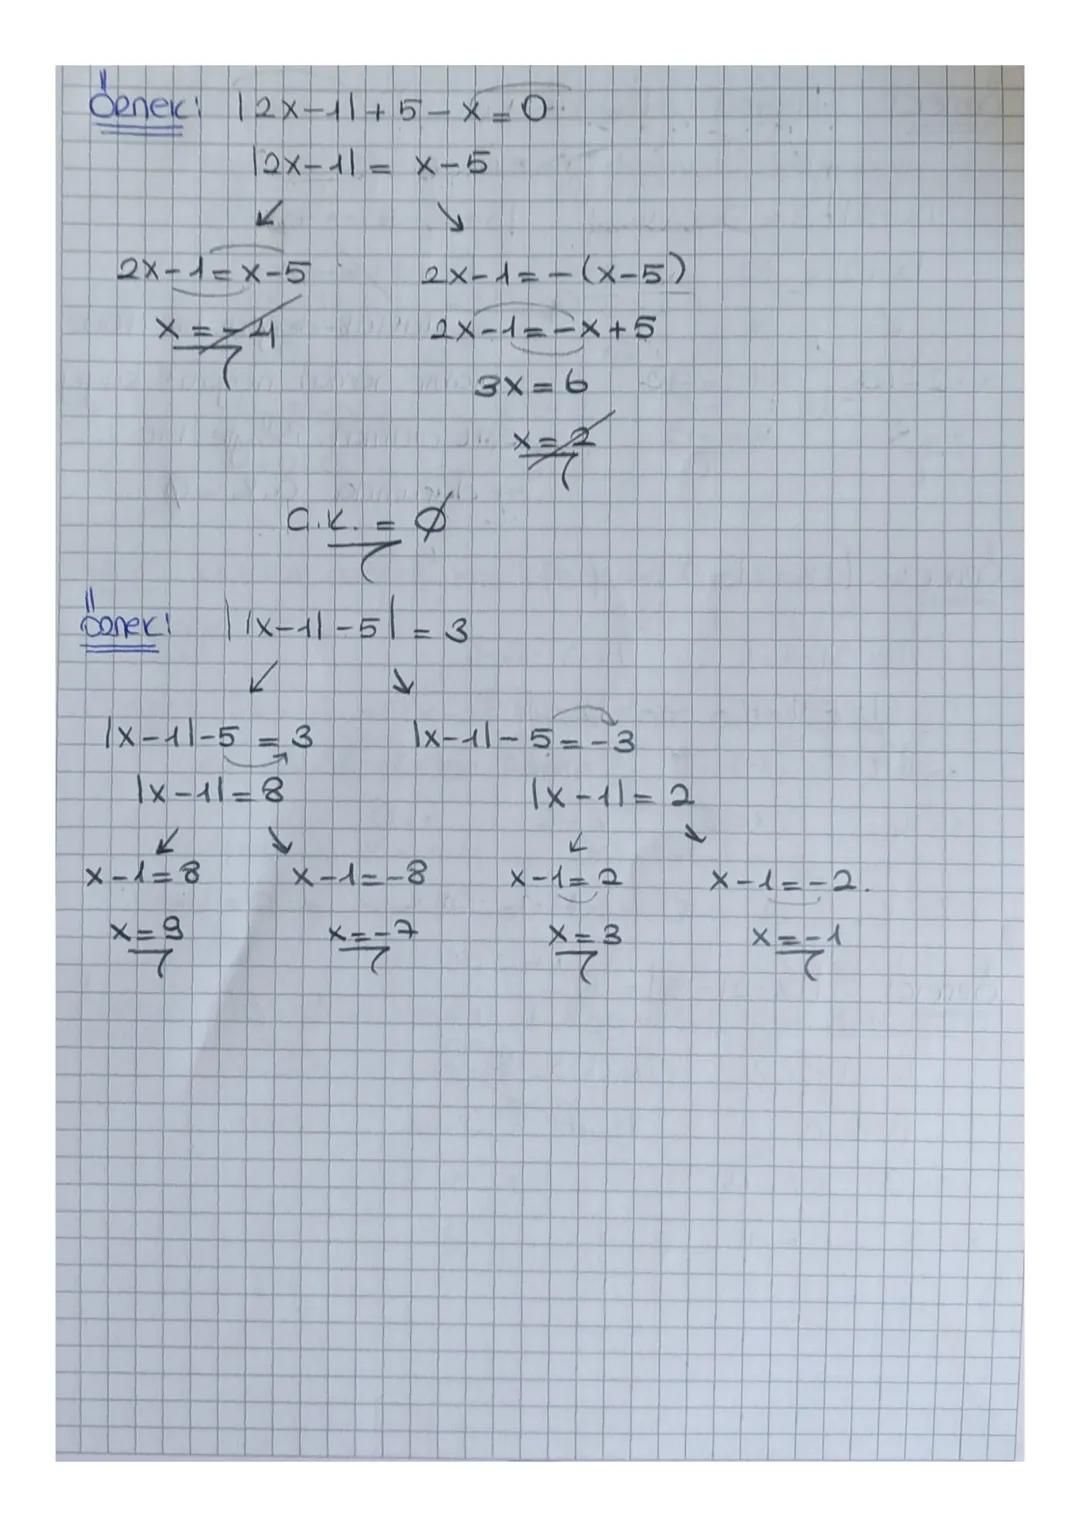 Örnek: |2x-1|+5-x=0
|2x-1| = x-5
↙ ↘
2x-1=x-5 2x-1=-(x-5)
x=-4 2x-1=-x+5
3x=6
x=2
Ç.K. = Ø
Örnek: ||x-1|-5|=3
↙ ↘
|x-1|-5=3 |x-1|-5=-3
|x-1|=8 |x-1|=2
↙ ↘ ↙ ↘
x-1=8 x-1=-8 x-1=2 x-1=-2.
x=9 x=-7 x=3 x=-1